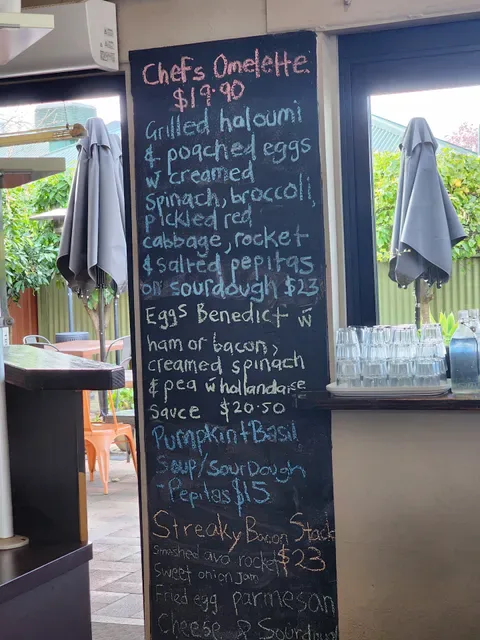 Chefs Omelette
$19.90
Grilled haloumi
& poached eggs
w creamed
spinach, broccoli,
pickled red
cabbage, rocket
& salted pepitas
on sourdough $23
Eggs Benedict w̄
ham or bacon,
creamed spinach
& pea w̄ hollandaise
sauce $20.50
Pumpkin + Basil
Soup/SourDough
- Pepitas $15
Streaky Bacon Stack
Smashed avo rocket $23
Sweet onion Jam
Fried egg parmesan
Cheese & Sourdough